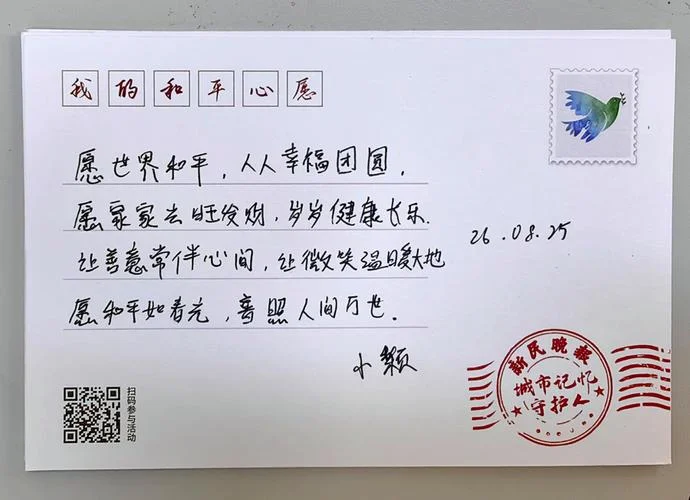 我的和平心愿
愿世界和平，人人幸福团圆，
愿家家兴旺发财，岁岁健康长乐.
让善意常伴心间，让微笑温暖大地
愿和平如春光，普照人间万世.
小颖
26.08.25
扫码参与活动
新民晚报
城市记忆
守护人